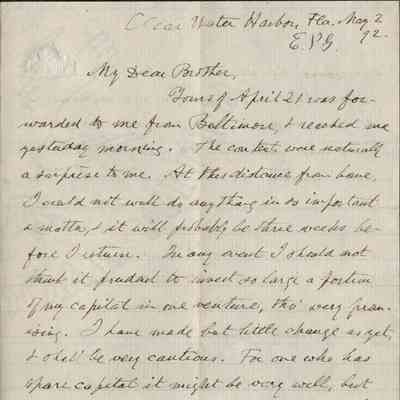 Clear Water Harbor, Fla. May 2
E.P.G. 92.
My Dear Brother,
Yours of April 21 was for-
warded to me from Baltimore, & reached me
yesterday morning. The contents were naturally
a surprise to me. At this distance from home,
I could not well do anything in so important
a matter, & it will probably be three weeks be-
fore I return. In any event I should not
think it prudent to invest so large a portion
of my capital in one venture, tho' very prom-
ising. I have made but little change as yet,
& shall be very cautious. For one who has
spare capital it might be very well, but